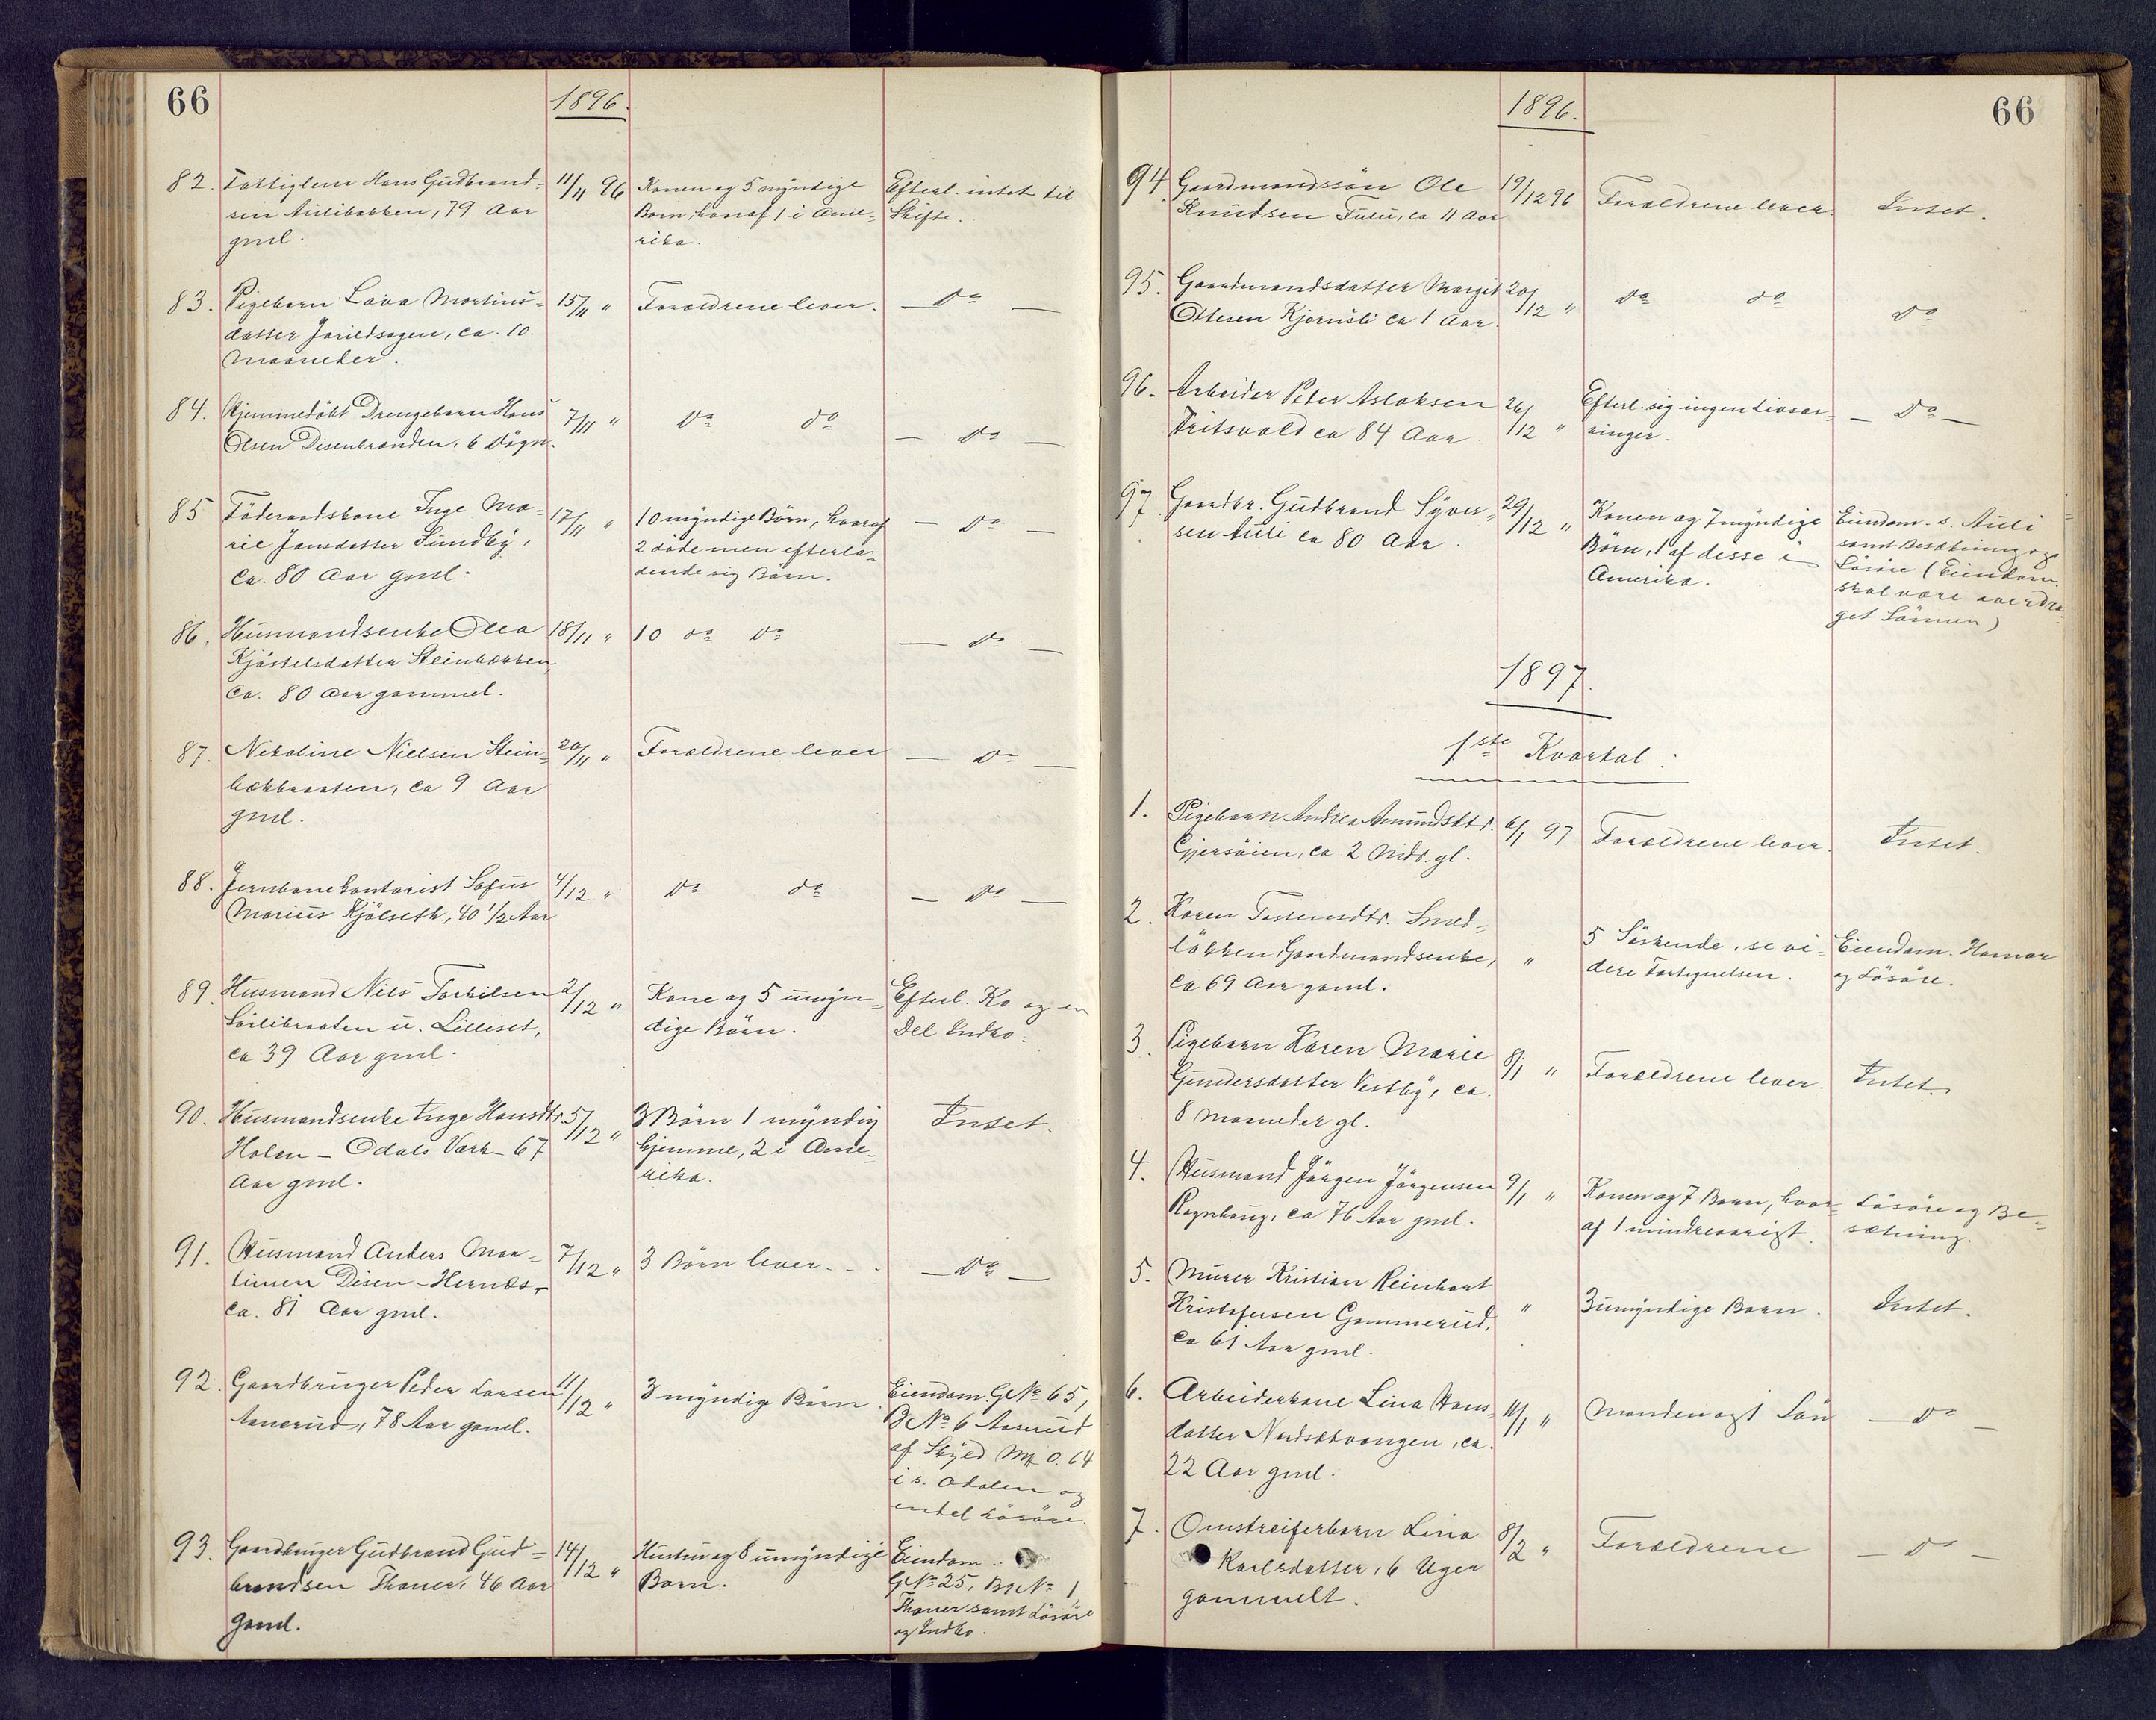 66
1896.
82. Fattiglem Hans Gudbrand- 11/11 96 Konen og 5 myndige Efterl. intet til
sen Aulibakken, 79 Aar Børn, hvoraf 1 i Ame- Skifte.
gml. rika.
83. Pigebarn Lova Martins- 15/11 " Forældrene lever. — do —
datter Jarildsagen, ca. 10
Maaneder.
84. Hjemmedøbt Drengebarn Hans 7/11 " do do — do —
Olsen Disenbranden, 6 Døgn.
85 Føderaadskone Inge Ma- 17/11 " 10 myndige Børn, hvoraf — do —
rie Jansdatter Sundby, 2 døde men efterla-
ca. 80 Aar gml. dende sig Børn.
86. Husmandsenke Olea 18/11 " 10 do do — do —
Kjøstelsdatter Steinbækken,
ca. 80 Aar gammel.
87. Nikoline Nielsen Stein- 20/11 " Forældrene lever — do —
bækbraaten, ca 9 Aar
gml.
88. Jernbanekontorist Sofus 4/12 " do do — do —
Marius Kjølseth, 40 1/2 Aar
89. Husmand Nils Torkilsen 2/12 " Kone og 5 umyn- Efterl. Ko og en
Sørlibraaten u. Lilliset, dige Børn. Del Indbo.
ca 39 Aar gml.
90. Husmandsenke Inge Hansdtr. 5/12 " 3 Børn 1 myndig Intet.
Holen - Odals Værk - 67 hjemme, 2 i Ame-
Aar gml. rika.
91. Husmand Anders Mar- 7/12 " 3 Børn lever. — do —
tinsen Disen-Hernæs-
ca. 81 Aar gml.
92. Gaardbruger Peder Larsen 11/12 " 3 myndig Børn. Eiendom G.No 65,
Aaserud, 78 Aar gaml. B.No 6 Aaserud
af Skyld Mk 0.64
i s. Odalen og
endel Løsøre.
93. Gaardbruger Gudbrand Gud- 14/12 " Hustru og 8 umyndige Eiendom
brandsen Thaner, 46 Aar Børn. GNo 25, BrNo 1,
gaml. Thaner samt Løsøre
og Indbo.
1896.
66
94. Gaardmandssøn Ole 19/12 96 Forældrene lever. Intet.
Knudsen Fulu, ca 11 Aar
95. Gaardmandsdatter Margit 20/12 " do do do
Ottesen Kjernsli ca 1 Aar.
96. Arbeider Peder Aslaksen 26/12 " Efterl. sig ingen Livsar- — do —
Fritsvold ca 84 Aar. vinger.
97. Gaardbr. Gudbrand Syver- 29/12 " Konen og 7 myndige Eiendom. s. Auli
sen Auli ca 80 Aar. Børn, 1 af desse i samt Besætning og
Amerika. Løsøre (Eiendom.
skal være overdra-
get Sønnen)
1897.
1ste Kvartal:
1. Pigebarn Andrea Amundsdtr. 6/1 97 Forældrene lever. Intet.
Gjersøien, ca 2 Mdr. gl.
2. Karen Tostensdtr. Smed-
løkken Gaardmandsenke, " 5 Søskende, se vi- Eiendom. Hamar
ca 69 Aar gaml. dere Fortegnelsen. og Løsøre.
3. Pigebarn Karen Marie 8/1 " Forældrene lever. Intet.
Gundersdatter Vestby, ca.
8 Maaneder gl.
4. Husmand Jørgen Jørgensen 9/1 " Konen og 7 Børn, hvor- Løsøre og Be-
Ragnhaug, ca 76 Aar gml. af 1 mindreaarigt. sætning.
5. Murer Kristian Reinhart
Kristofersen Gammerud, " 3 umyndige Børn. Intet.
ca 61 Aar gml.
6. Arbeiderkone Lina Hans- 11/1 " Manden og 1 Søn — do —
datter Nordstvangen, ca.
22 Aar gml.
7. Omstreiferbarn Lina 8/2 " Forældrene — do —
Karlsdatter, 6 Uger
gammelt.